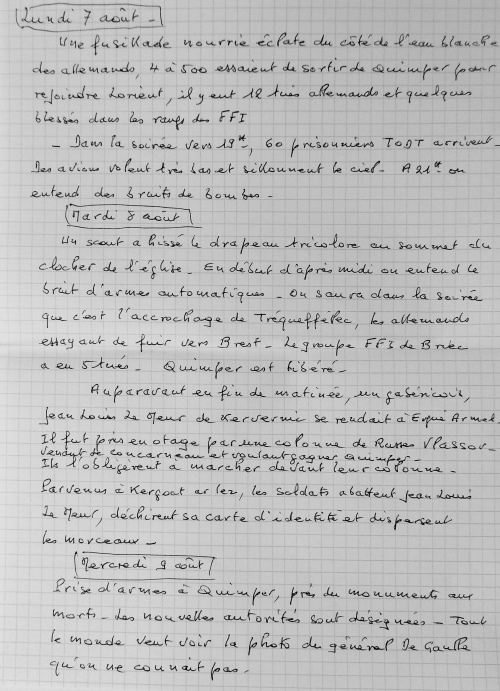 Lundi 7 août -
Une fusillade nourrie éclate du côté de l'eau blanche
des allemands, 4 à 500 essaient de sortir de Quimper pour
rejoindre Lorient, il y eut 12 tués allemands et quelques
blessés dans les rangs des FFI
- Dans la soirée vers 19H, 60 prisonniers TODT arrivent -
Des avions volent très bas et sillonnent le ciel - A 21H on
entend des bruits de bombes -
Mardi 8 août
Un scout a hissé le drapeau tricolore au sommet du
clocher de l'église - En début d'après midi on entend le
bruit d'armes automatiques - On saura dans la soirée
que c'est l'accrochage de Tréqueffelec, les allemands
essayant de fuir vers Brest - Le groupe FFI de Briec
a en 5 tués - Quimper est libéré -
Auparavant en fin de matinée, un gabéricois,
Jean Louis Le Meur de Kervernic se rendait à Ergué Armel.
Il fut pris en otage par une colonne de Russes Vlassov -
venant de Concarneau et voulant gagner Quimper -
Ils l'obligèrent à marcher devant leur colonne -
Parvenus à Kergoat ar lez, les soldats abattent Jean Louis
Le Meur, déchirent sa carte d'identité et dispersent
les morceaux -
Mercredi 9 août
Prise d'armes à Quimper, près du monuments aux
morts - Les nouvelles autorités sont désignées - Tout
le monde veut voir la photo du général De Gaulle
qu'on ne connait pas -